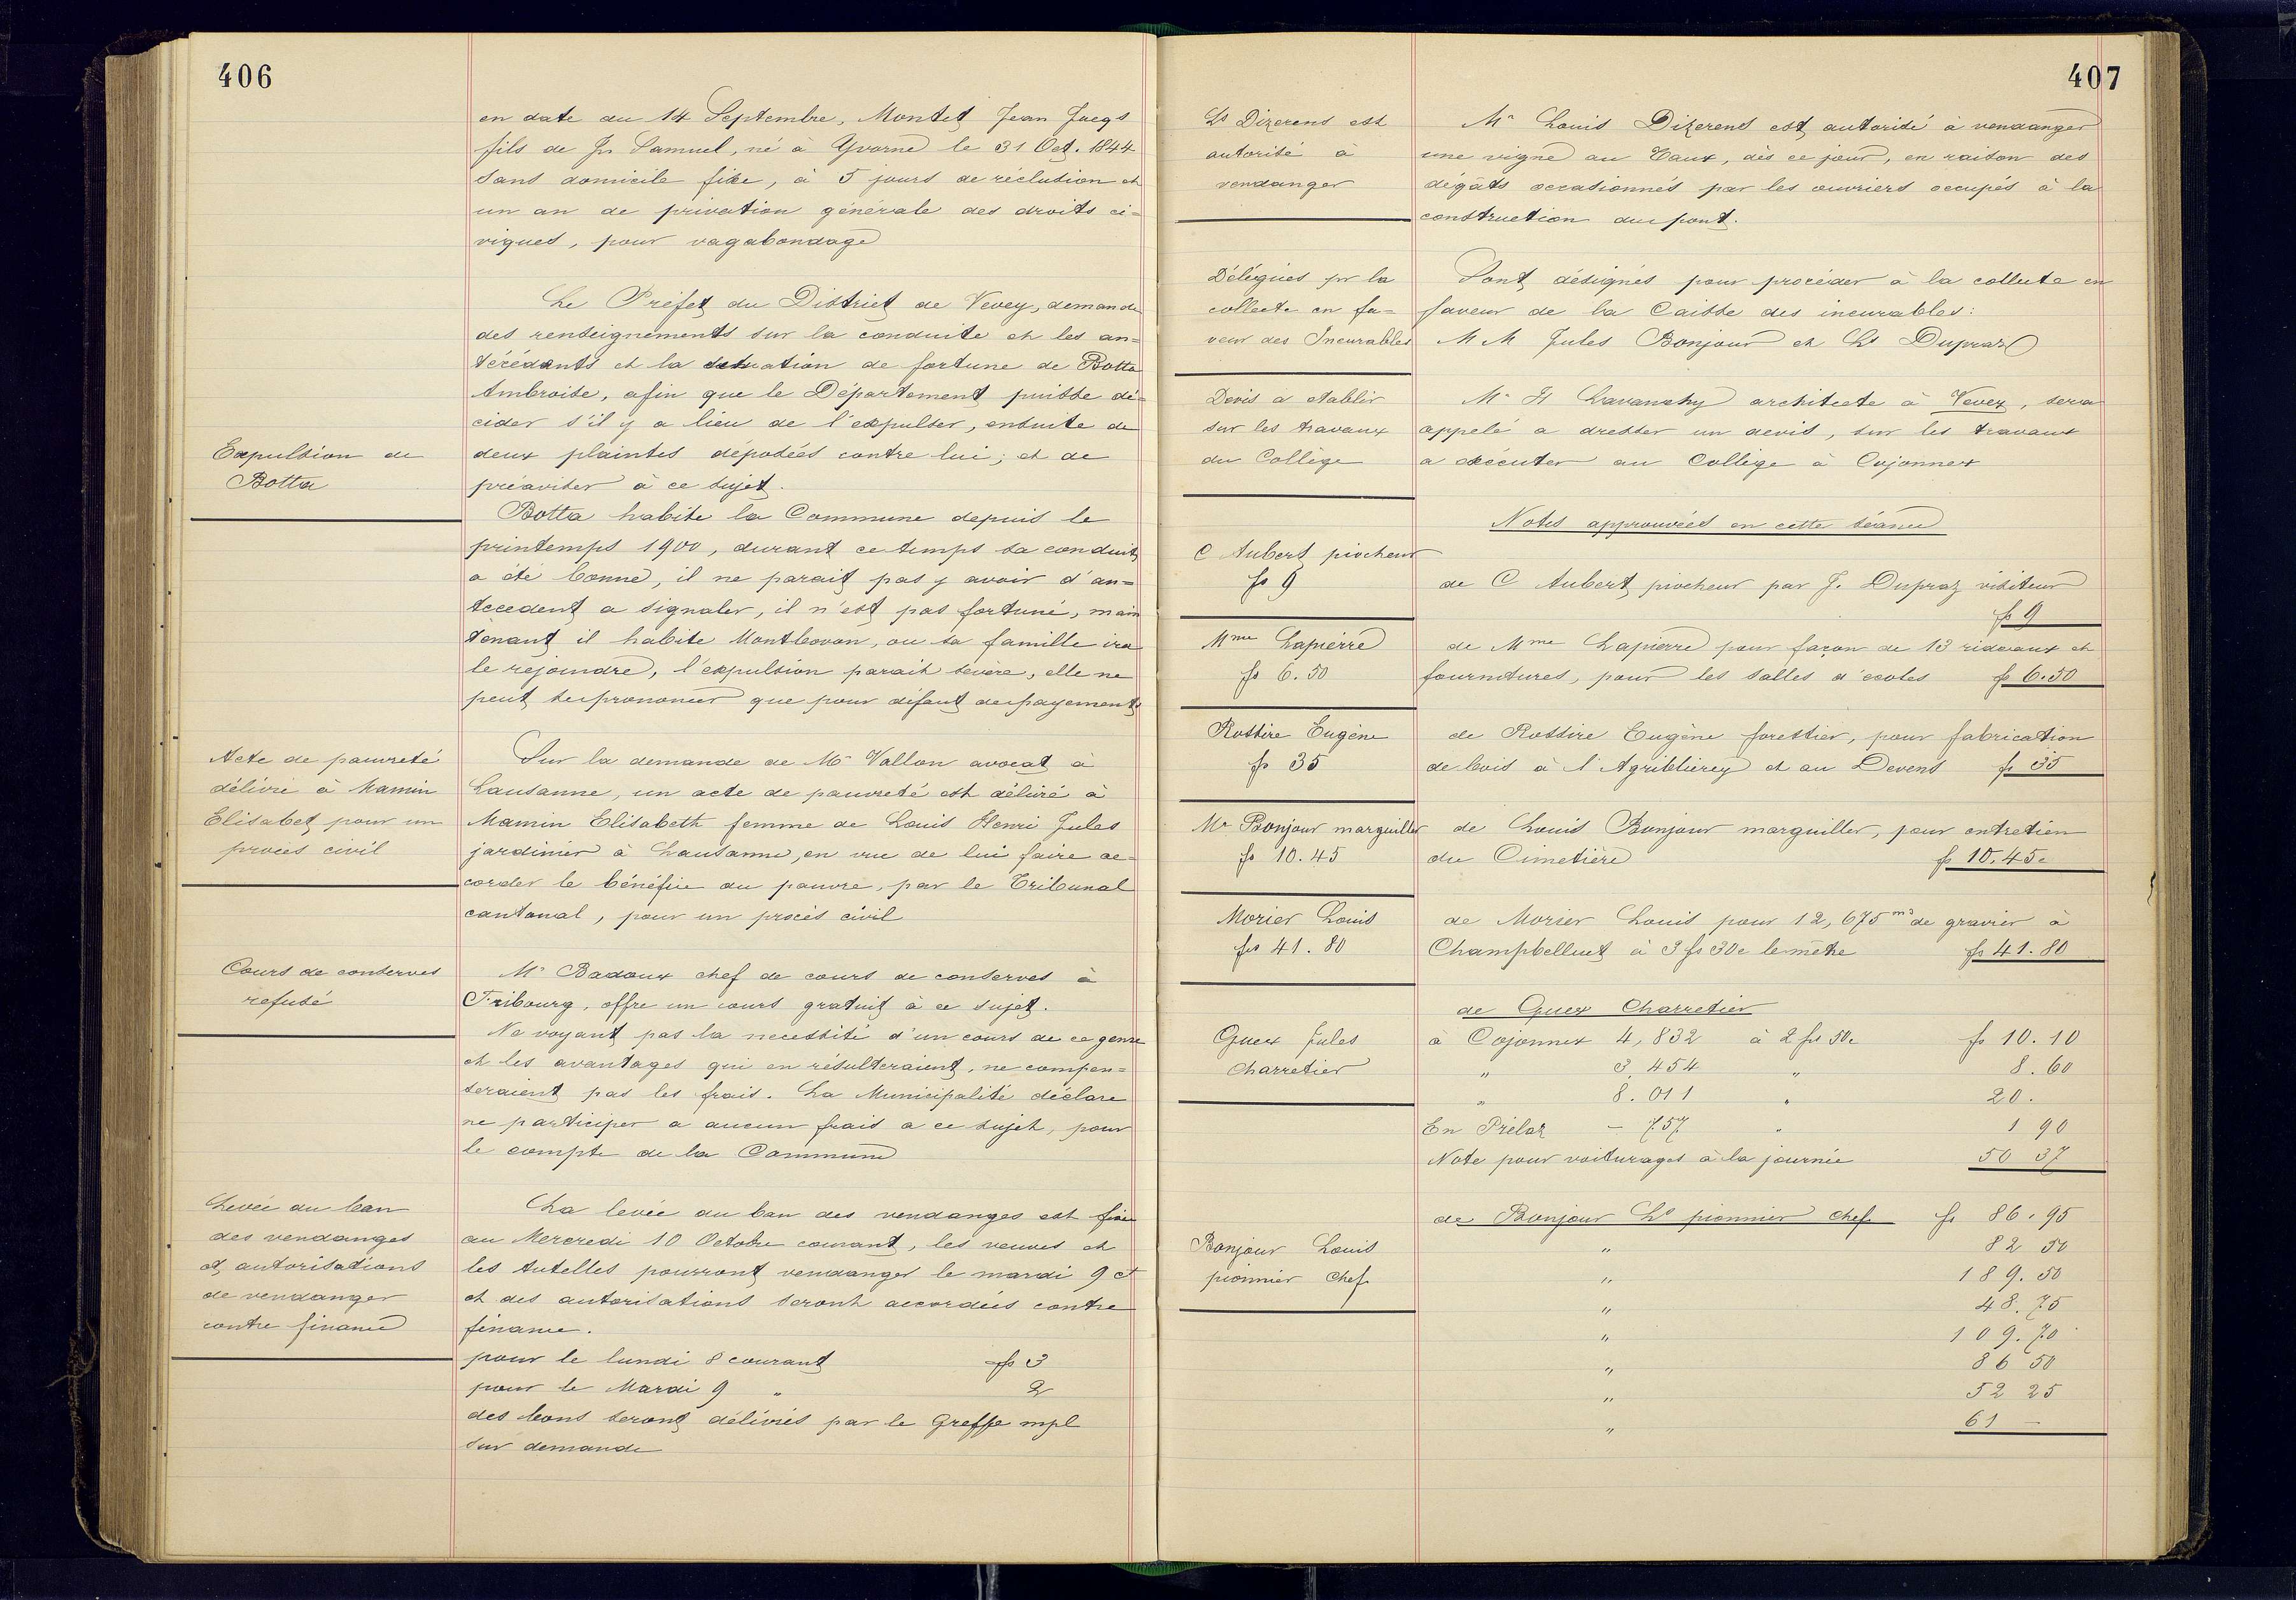 406
en date du 14 Septembre, Montet Jean Jaqs
fils de Jn Samuel, né a Yvorne le 31 Oct. 1844
sans domicile fixe, à 5 jours de réclusion et
un an de privation générale des droits ci=
viques, pour vagabondage
Le Préfet du District de Vevey, demande
des renseignements sur la conduite et les an=
técédants et la situation de fortune de Botta
Ambroise, afin que le Département puisse dé=
cider s'il y a lieu de l'expulser, ensuite de
Expulsion de
deux plaintes déposées contre lui; et de
Botta
préaviser à ce sujet.
Botta habite la Commune depuis le
printemps 1900, durant ce temps sa conduite
a été bonne, il ne parait pas y avoir d'an=
tecedent a signaler, il n'est pas fortuné, main
tenant il habite Montbovon, ou sa famille ira
le rejoindre, l'expulsion parait sévère, elle ne
peut se prononcer que pour défaut de payement
Acte de pauvreté
délivré à Mamin
Elisabet pour un
procès civil
Sur la demande de Mr Vallon avocat à
Lausanne, un acte de pauvreté est délivré à
Mamin Elisabeth femme de Louis Henri Jules
jardinier à Lausanne, en vue de lui faire ac=
corder le bénéfice du pauvre, par le Tribunal
cantonal, pour un procès civil
Cours de conserves
refusé
Mr Badoux chef de cours de conserves à
Fribourg, offre un cours gratuit à ce sujet.
Ne voyant pas la necessité d'un cours de ce genre
et les avantages qui en résulteraient, ne compen=
seraient pas les frais. La Municipalité déclare
ne participer a aucun frais a ce sujet, pour
le compte de la Commune
Levée du ban
des vendanges
et autorisations
de vendanger
contre finance
La levée du ban des vendanges est fixée
au Mercredi 10 Octobre courant, les veuves et
les tutelles pourront vendanger le mardi 9 ct
et des autorisations seront accordées contre
finance.
pour le lundi 8 courant fs 3
pour le Mardi 9 " 2
des bons seront délivrés par le Greffe mpl
sur demande
407
Ls Dizerens est
autorisé à
vendanger
Mr Louis Dizerens est autorisé à vendanger
une vigne au Vaux, dès ce jour, en raison des
dégâts occasionnés par les ouvriers occupés à la
construction du pont.
Délégués pr la
collecte en fa=
veur des Incurables
Sont désignés pour procéder à la collecte en
faveur de la Caisse des incurables:
MM Jules Bonjour et Ls Dupraz
Devis a etablir
sur les travaux
du Collège
Mr H Lavanchy architecte à Vevey, sera
appelé a dresser un devis, sur les travaux
a exécuter au Collège à Cojonnex
Notes approuvées en cette séance
C Aubert piocheur
fs 9
de C Aubert piocheur par J. Dupraz visiteur
fs 9
Mme Lapierre
fs 6.50
de Mme Lapierre pour façon de 13 rideaux et
fournitures, pour les salles d'écoles fs 6.50
Rossire Eugène
fs 35
de Rossire Eugène forestier, pour fabrication
de bois à l'Agriblierey et au Devens fs 35
Mr Bonjour marguiller
fs 10.45
de Louis Bonjour marguiller, pour entretien
du Cimetière fs 10.45c
Morier Louis
frs 41.80
de Morier Louis pour 12,675 m3 de gravier à
Champbelluet à 3 fs 30c le mètre fs 41.80
de Guex Charretier
Guex Jules
Charretier
à Cojonnex 4,832 à 2 frs 50c fs 10.10
" 3,454 " 8.60
" 8.011 " 20.
En Prélaz - 757 " 1 90
Note pour voiturages à la journée 50 37
Bonjour Louis
pionnier Chef
de Bonjour Ls pionnier Chef fs 86.95
" 82 50
" 189.50
" 48.75
" 109.70
" 86 50
" 52 25
" 61 -